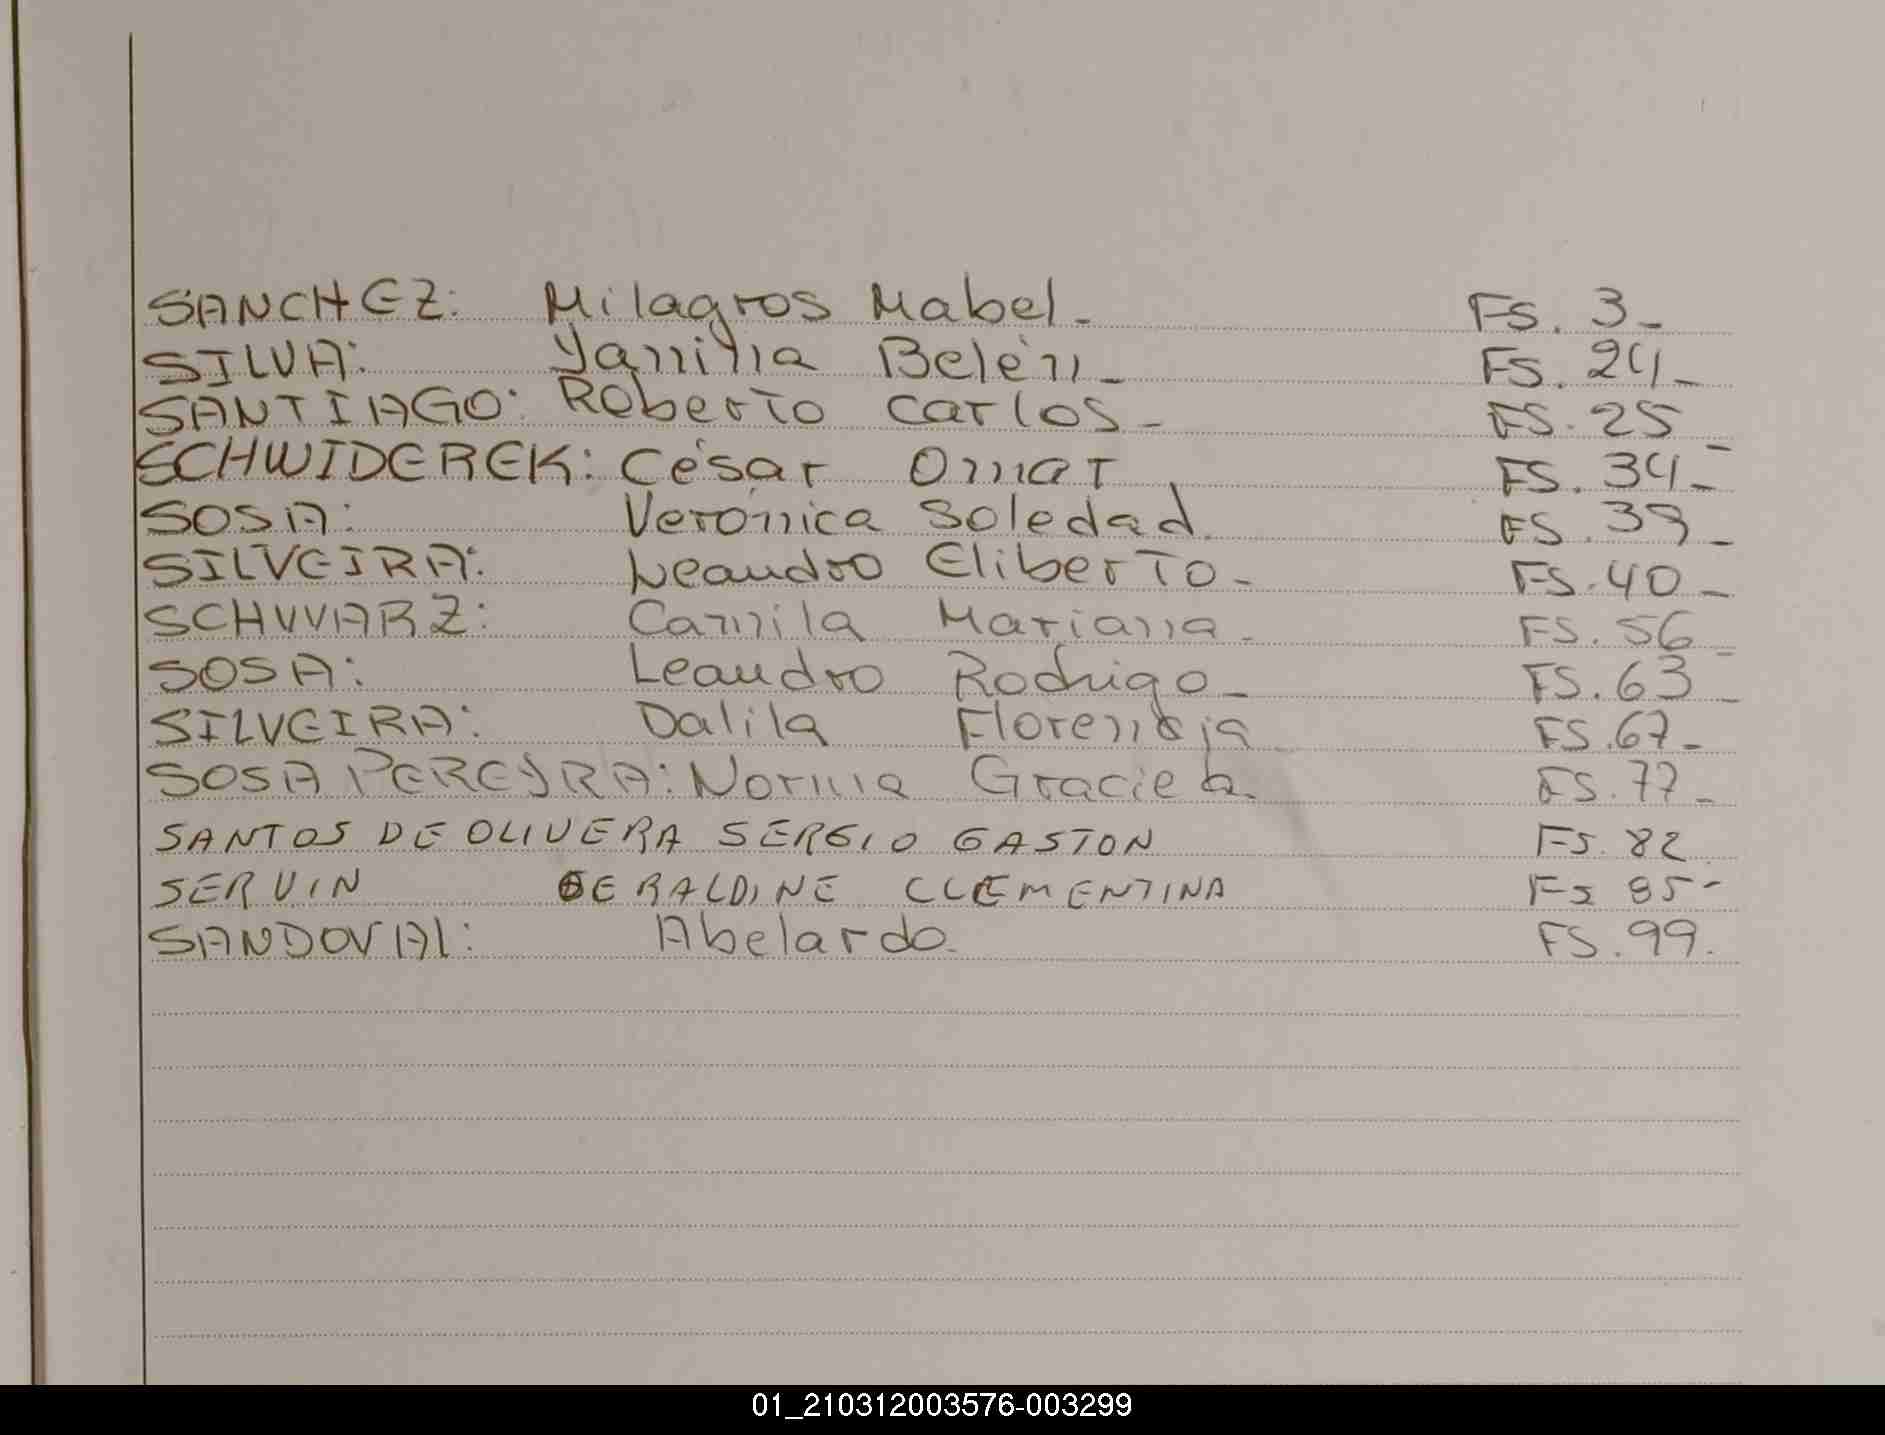 SANCHEZ: Milagros Mabel.- FS. 3.-
SILVA: Yamila Belén.- FS. 24.-
SANTIAGO: Roberto Carlos.- FS. 25.-
SCHWIDEREK: César Omar FS. 34.-
SOSA: Verónica Soledad. FS. 39.-
SILVEIRA: Leandro Eliberto.- FS. 40.-
SCHWARZ: Camila Mariana.- FS. 56.-
SOSA: Leandro Rodrigo.- FS. 63.-
SILVEIRA: Dalila Florencia FS. 67.-
SOSA PEREYRA: Norma Graciela. FS. 77.-
SANTOS DE OLIVERA SERGIO GASTON FS. 82.
SERVIN GERALDINE CLEMENTINA FS 85-
SANDOVAL: Abelardo. FS. 99.
01_210312003576-003299